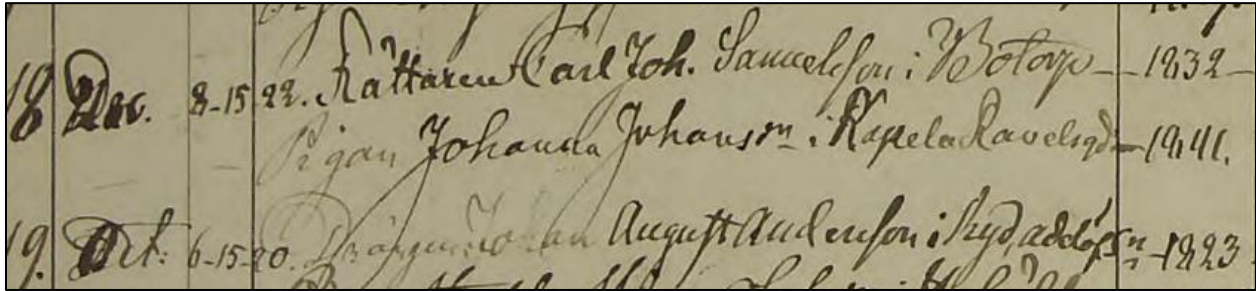 18 Dec. 8-15 22. Rättaren Carl Joh. Samuelsson i Botorp — 1832 —
Pigan Johanna Johansn i Kapela — 1841.
19. Oct. 6-15-20. Drängen Johan August Andersson i Ryd, 1823